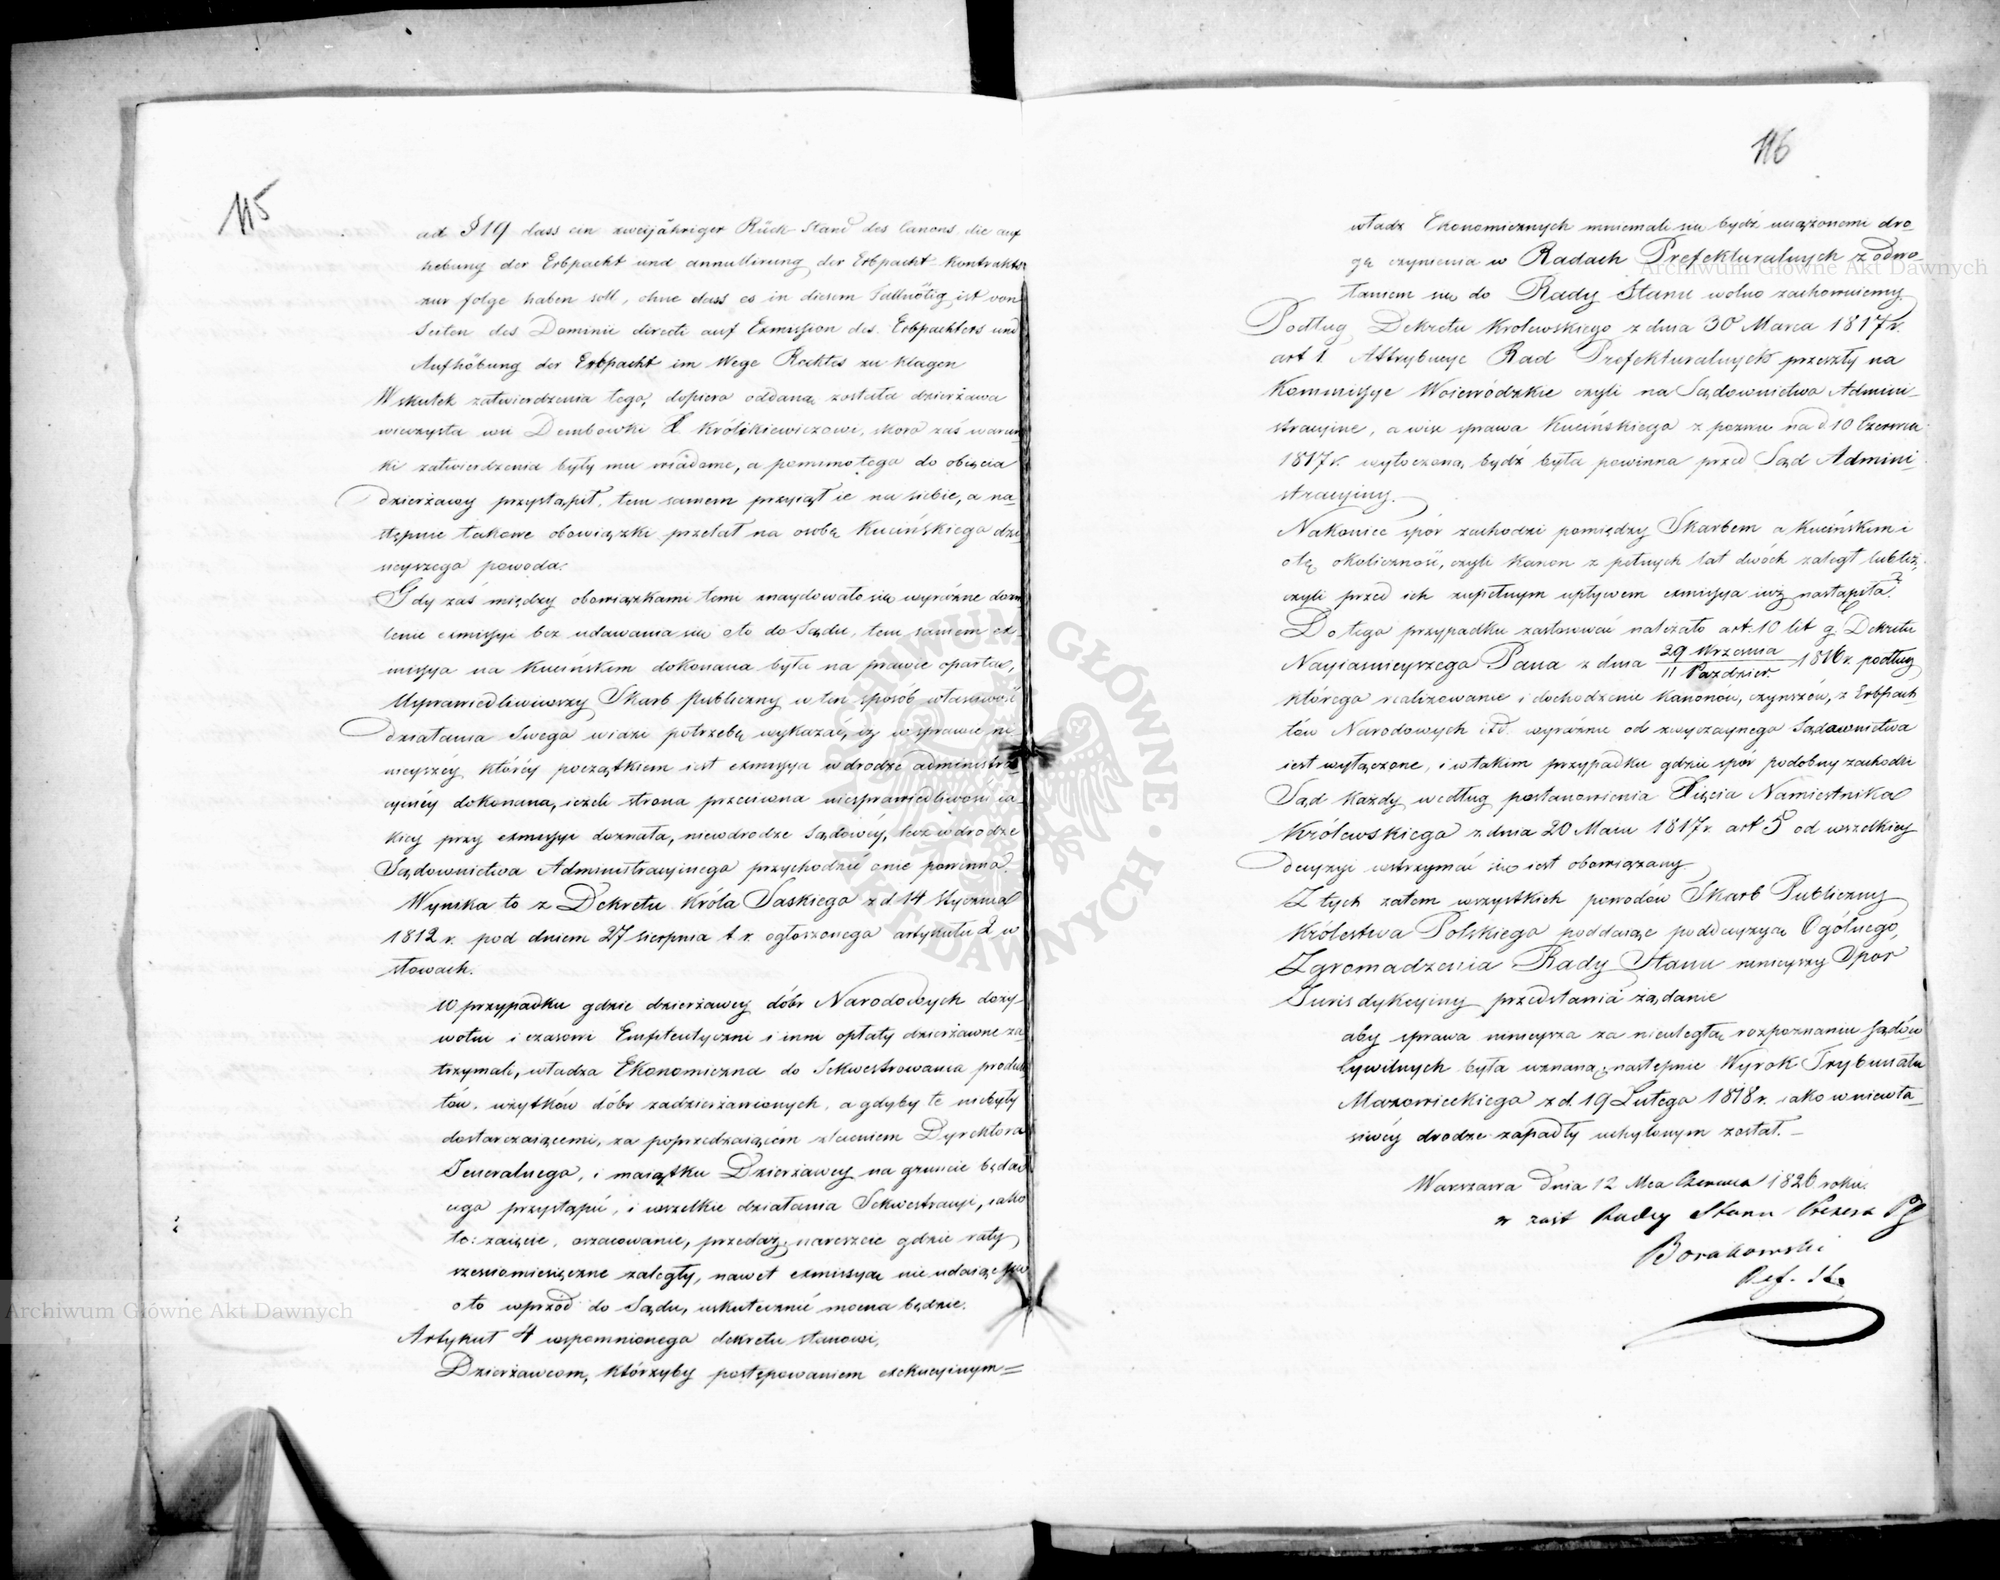 115
ad § 19 dass ein zweijähriger Rück Stand des Canons die auf
hebung der Erbpacht und annullirung der Erbpacht-Kontrakts
zur folge haben soll, ohne dass es in diesem Fall nötig ist von
Seiten des Dominii directe auf Exmission des Erbpachters und
Aufhöbung der Erbpacht im Wege Rechtes zu klagen
Wskutek zatwierdzenia tego, dopiero oddaną została dzierżawa
wieczysta wsi Dembowki Królikiewiczowi, skoro zaś warun
ki zatwierdzenia były mu wiadome, a pomimo tego do obięcia
dzierżawy przystąpił, tem samem przyiął ie na siebie, a na
stępnie takowe obowiązki przelał na osobę Kucińskiego dzi
sieyszego powoda.
Gdy zaś między obowiązkami temi znaydowało się wyraźne dozwo
lenie exmissyi bez udawania się o to do Sądu, tem samem ex-
missya na Kucińskim dokonana była na prawie opartą,
Usprawiedliwiwszy Skarb publiczny w ten sposób własciwość
działania Swego widzi potrzebę wykazać, iż w sprawie ni
nieyszéy któréy początkiem iest exmissya w drodze administra
cyinéy dokonana, ieżeli strona przeciwna niesprawiedliwości ia
kiey przy exmissyi doznała, nie w drodze Sądowéy, lecz w drodze
Sądownictwa Administracyinego przychodzić o nie powinna.
Wynika to z Dekretu Króla Saskiego z d 14 Stycznia
1812 r. pod dniem 27 sierpnia t. r. ogłoszonego artykułu 2 w
słowach.
W przypadku gdzie dzierżawcy dóbr Narodowych doży
wotni i czasowi Emfiteutyczni i inni opłaty dzierżawne za
trzymali, władza Ekonomiczna do Sekwestrowania produk
tów, użytków dóbr zadzierżawionych, a gdyby te niebyły
dostarczaiącemi, za poprzedzaiącém zleceniem Dyrektora
Jeneralnego, i maiątku Dzierżawcy na gruncie będą
cego przystąpić, i wszelkie działania Sekwestracyi, iako
to: zaięcie, oszacowanie, przedaż, nareszcie gdzie raty
sześciomiesięczne zaległy, nawet exmissyą nie udaiąc się
o to wprzód do Sądu, uskutecznić mocna będzie.
Artykuł 4 wspomnionego dekretu stanowi,
Dzierżawcom, którzyby postępowaniem exekucyinym=
116
władz Ekonomicznych mniemali się bydź uciążonemi dro-
gę czynienia w Radach Prefekturalnych z odwo-
łaniem się do Rady Stanu wolno zachowuiemy
Podług Dekretu Krolewskiego z dnia 30 Marca 1817 r.
art 1. Attrybucye Rad Prefekturalnych przeszły na
Kommissye Woiewódzkie czyli na Sądownictwa Admini-
stracyine, a więc sprawa Kucińskiego z pozwu na d 10 Czerwca
1817 r. wytoczoną bydź była powinna przed Sąd Admini-
stracyiny.
Nakoniec spór zachodzi pomiędzy Skarbem a Kucińskim i
o tę okoliczność, czyli kanon z pełnych lat dwóch zaległ lub też
czyli przed ich zupełnym upływem exmissya iuż nastąpiła?
Do tego przypadku zastosować należało art. 10 lit g Dekretu
Nayiasnieyszego Pana z dnia 29 Wrzesnia / 11 Paździer. 1816 r. podług
którego realizowanie i dochodzenie kanonów, czynszów, z Erbpach
tów Narodowych itd. wyraźnie od zwyczaynego Sądownictwa
iest wyłączone, i w takim przypadku gdzie spór podobny zachodzi
Sąd każdy według postanowienia Xięcia Namiestnika
Królewskiego z dnia 20 Maia 1817 r. art 5 od wszelkiey
decyzyi wstrzymać się iest obowiązany
Z tych zatem wszystkich powodów Skarb Publiczny
Królestwa Polskiego poddaiąc pod decyzyą Ogólnego
Zgromadzenia Rady Stanu ninieyszy Spór
Jurisdykcyiny przedstawia żądanie
aby sprawa ninieysza za nieuległą rozpoznaniu Sądów
Cywilnych była uznaną, następnie Wyrok Trybunału
Mazowieckiego z d. 19 Lutego 1818 r. iako w niewła-
siwéy drodze zapadły uchylonym został. -
Warszawa dnia 12 Mca Czerwca 1826 roku.
w zast Radcy Stanu Prezesa
Borakowski
Ref. St.
Archiwum Główne Akt Dawnych
Archiwum Główne Akt Dawnych
ARCHIWUM GŁÓWNE AKT DAWNYCH